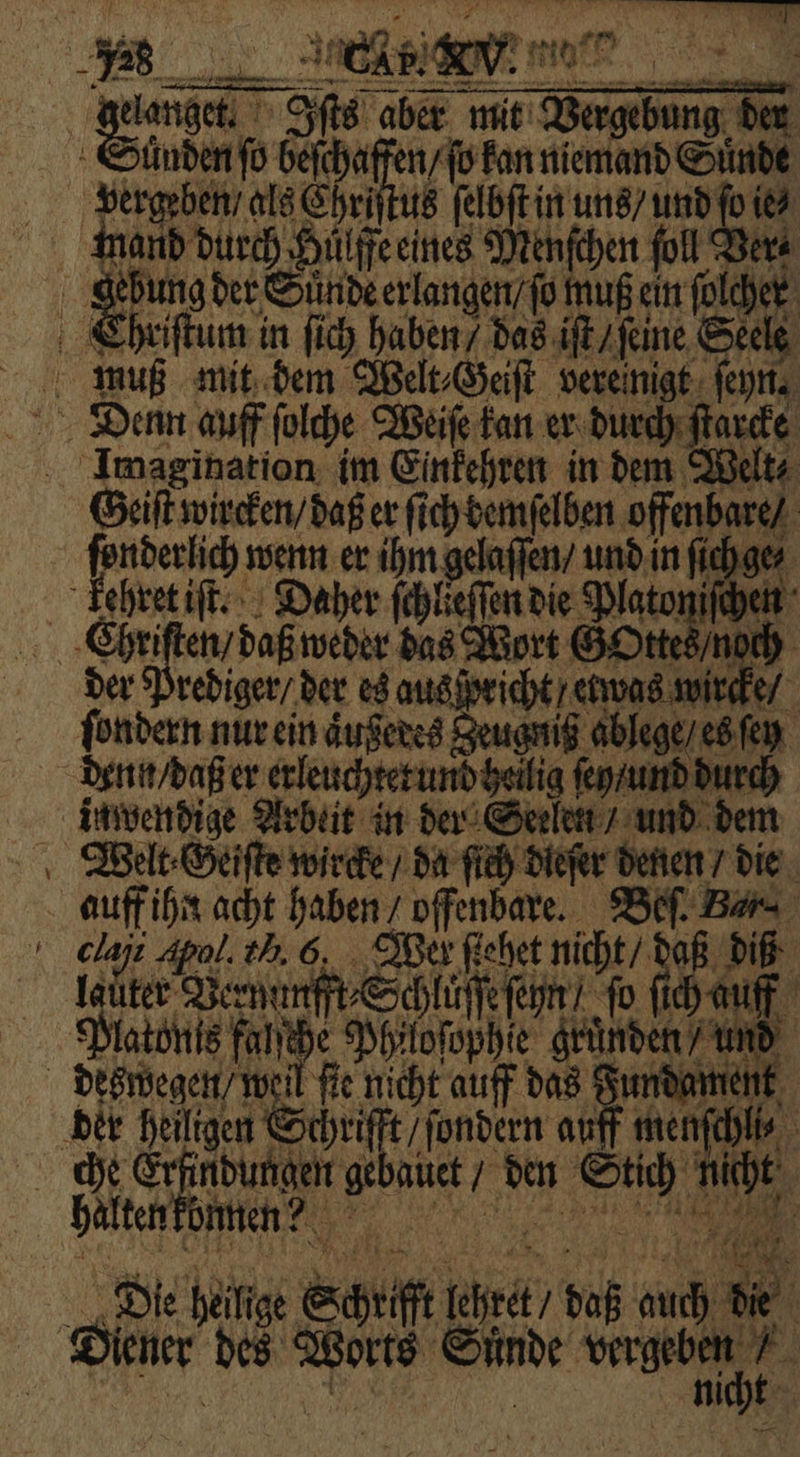 728 CAP. XV.
gelanget. Iſts aber mit Vergebung der
Suͤnden ſo beſchaffen/ ſo kan niemand Suͤnde
vergeben/ als Chriſtus ſelbſt in uns/ und ſo ie⸗
mand durch Huͤlffe eines Menſchen ſoll Ver⸗
gebung der Suͤnde erlangen/ ſo muß ein ſolcher
Chriſtum in ſich haben/ das iſt/ ſeine Seele
muß mit dem Welt⸗Geiſt vereinigt ſeyn.
Denn auff ſolche Weiſe kan er durch ſtarcke
Imagination im Einkehren in dem Welt⸗
Geiſt wircken/ daß er ſich demſelben offenbare/
ſonderlich wenn er ihm gelaſſen/ und in ſich ge⸗
kehret iſt. Daher ſchlieſſen die Platoniſchen
Chriſten/ daß weder das Wort GOttes/ noch
der Prediger/ der es ausſpricht/ etwas wircke/
ſondern nur ein aͤußeres Zeugniß ablege/ es ſey
denn/ daß er erleuchtet und heilig ſey/ und durch
inwendige Arbeit in der Seelen/ und dem
Welt⸗Geiſte wircke/ da ſich dieſer denen/ die
auff ihn acht haben/ offenbare. Beſ. Bar-
claji Apol. th. 6. Wer ſiehet nicht/ daß diß
lauter Vernunfft⸗Schluͤſſe ſeyn/ ſo ſich auff
Platonis falſche Philoſophie gruͤnden/ und
deswegen/ weil ſie nicht auff das Fundament
der heiligen Schrifft/ ſondern auff menſchli⸗
che Erfindungen gebauet/ den Stich nicht
halten koͤnnen?
Die heilige Schrifft lehret/ daß auch die
Diener des Worts Suͤnde vergeben/
nicht